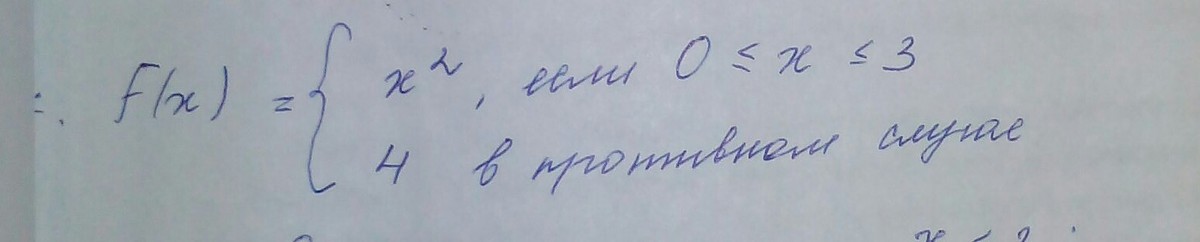 f(x) = { x², если 0 ≤ x ≤ 3
4 в противном случае